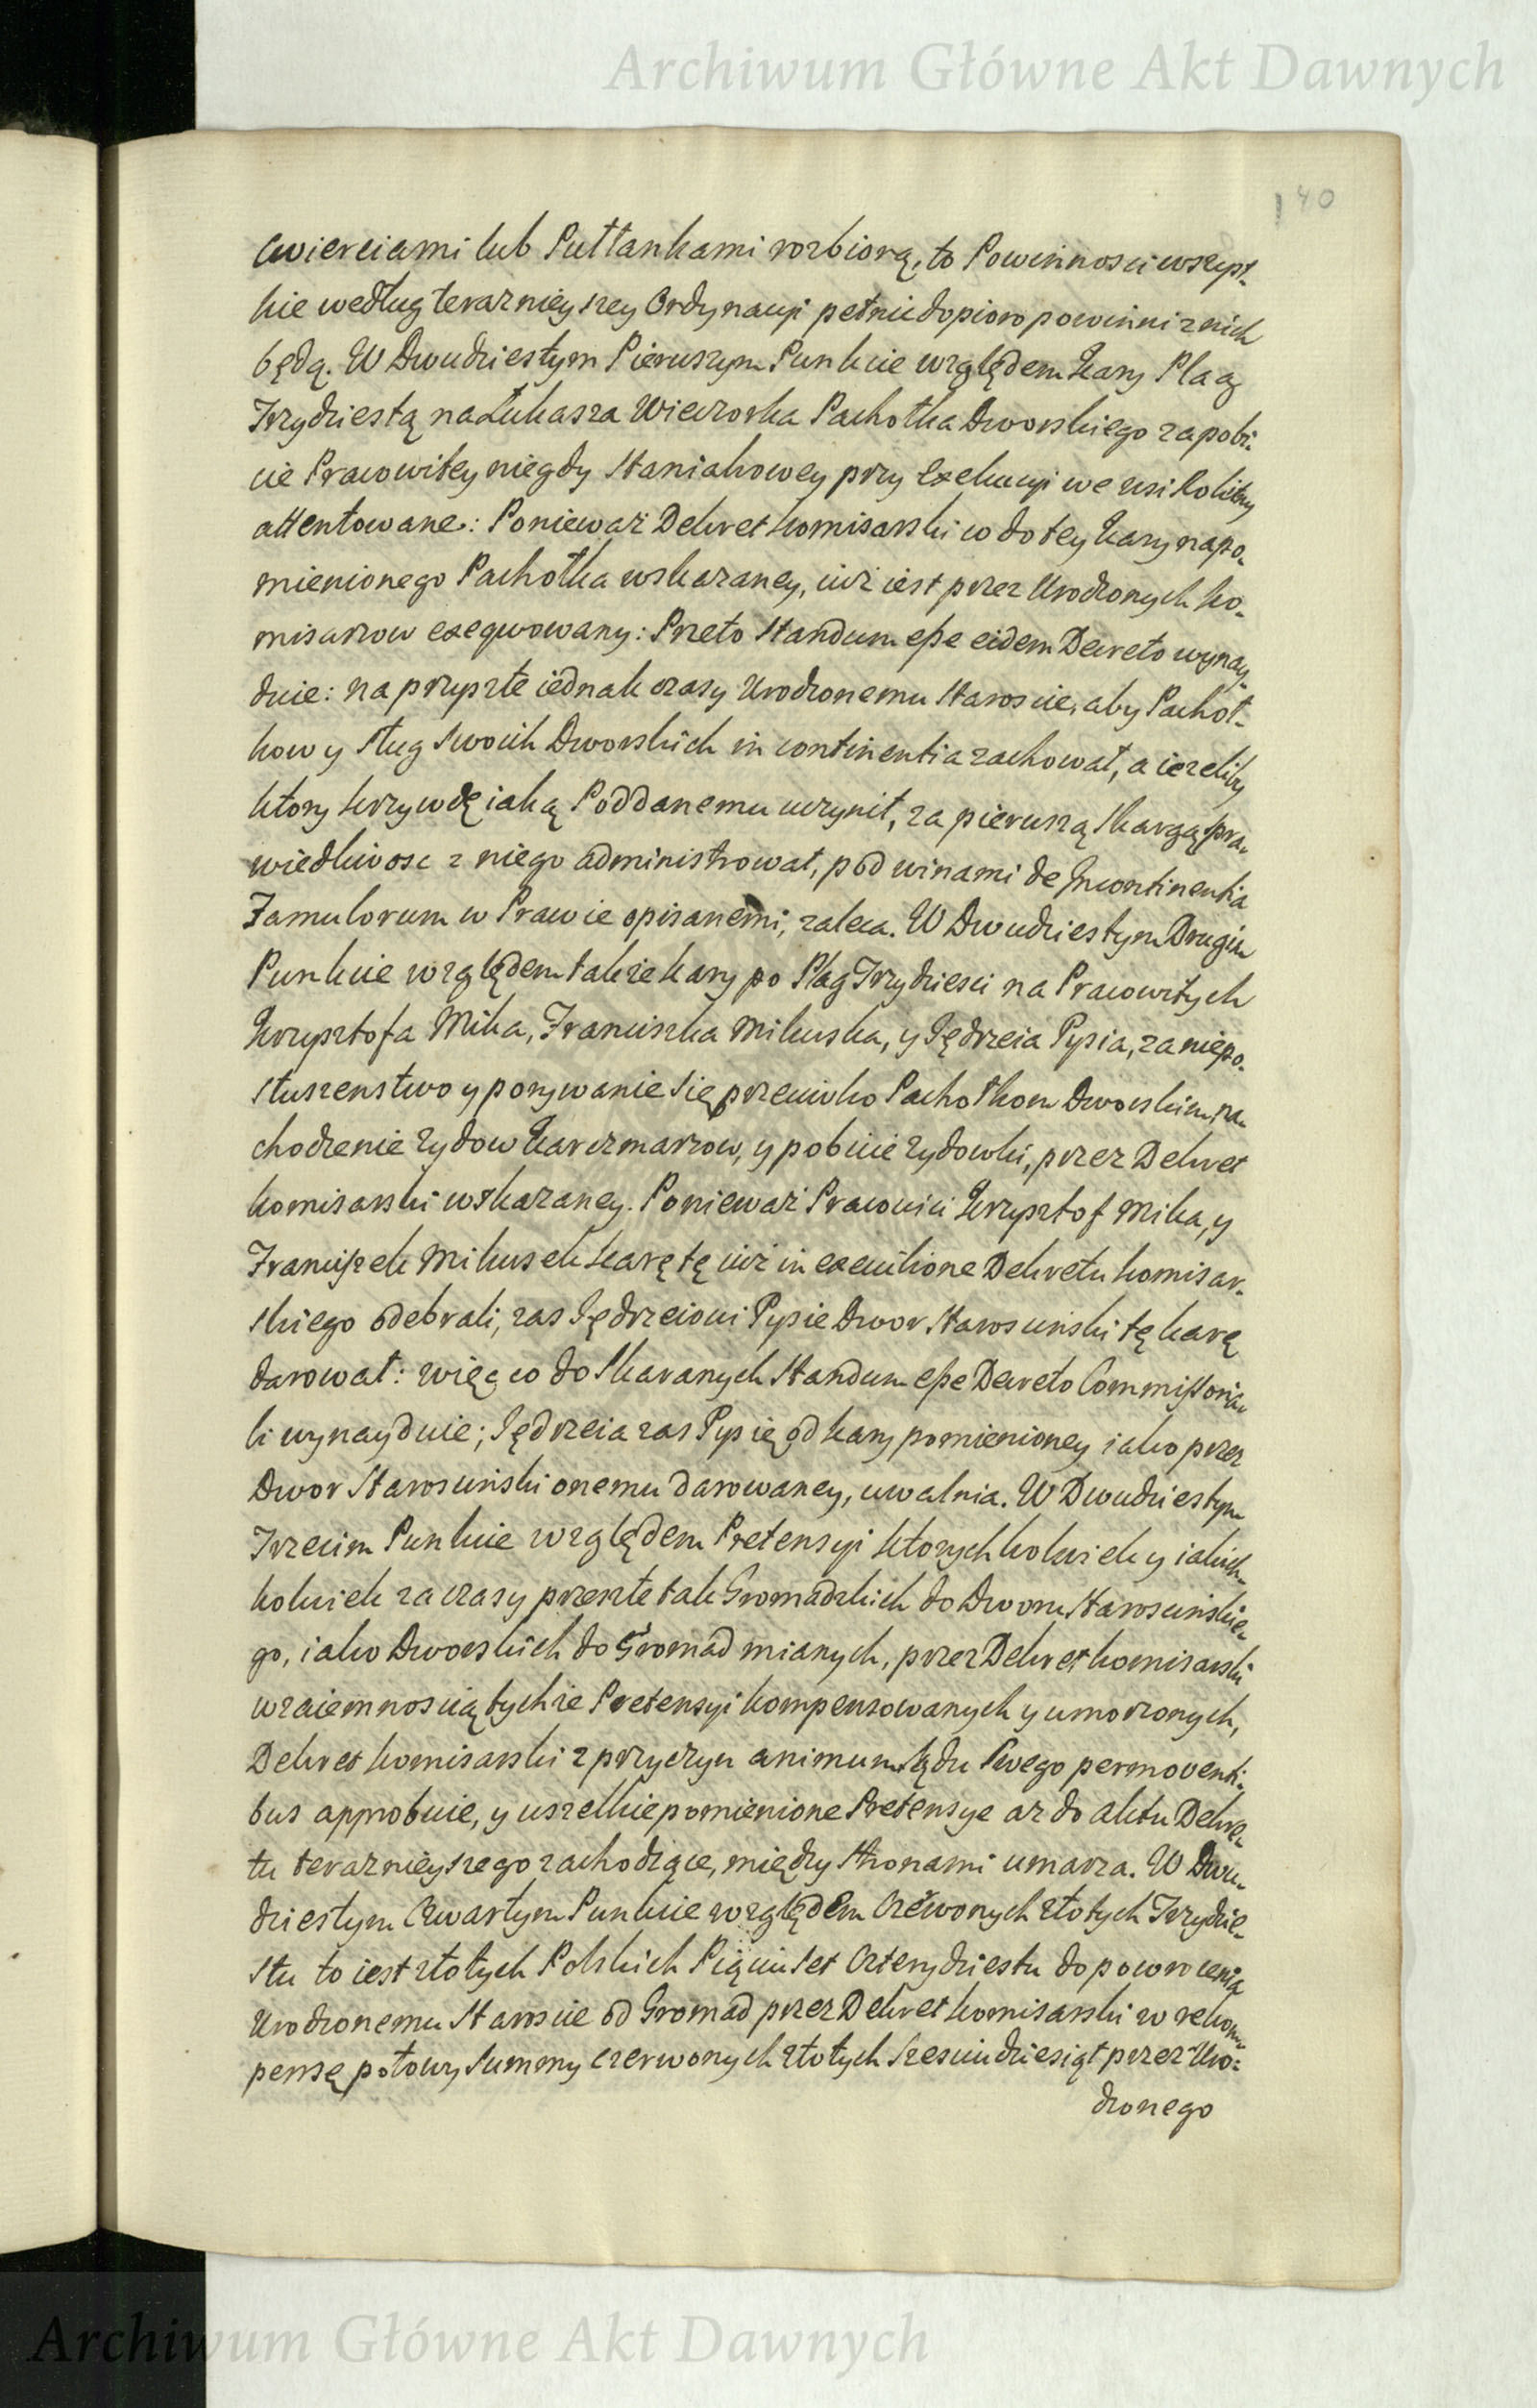 Archiwum Główne Akt Dawnych
140
cwierciami lub Pułłankami rozbiorą, to Powinnosci wszyst-
kie według terazniejszey Ordynacyi pełnić dopioro powinni z nich
będą. W Dwudziestym Pierwszym Punkcie względem Kary Plag
Trzydziestą na Łukasza Wieczorka Pachołka Dworskiego za pobi-
cie Pracowitey niegdy Staniakowey przy Exekucyi we wsi
attentowane: Ponieważ Dekret Komisarski co do tey Kary na po-
mienionego Pachołka wskazaney, iuż iest przez Urodzonych Ko-
misarzow exeqwowany: Przeto Standum esse eidem Decreto wynay-
duie: na przyszłe iednak czasy Urodzonemu Staroscie, aby Pachoł-
kow y sług swoich Dworskich in continentia zachował, a ieżeliby
ktory krzywdę iaką Poddanemu uczynił, za pierwszą skargą spra-
wiedliwosc z niego administrował, pod winami de Incontinentia
Famulorum w Prawie opisanemi, zaleca. W Dwudziestym Drugim
Punkcie względem także kary po Plag Trzydziesci na Pracowitych
Krzysztofa Mika, Franciszka Mikuska, y Jędrzeia Pysia, za niepo-
słuszenstwo y porywanie się przeciwko Pachołkom Dworskim, na-
chodzenie Żydow Karczmarzow, y pobicie Żydowki, przez Dekret
Komisarski wskazaney. Ponieważ Pracowici Krzysztof Mika, y
Franciszek Mikusek karę tę iuż in executione Dekretu Komisar-
skiego odebrali, zas Jędrzeiowi Pysie Dwor Starosciński tę karę
darował: więc co do skaranych Standum esse Decreto Commissoria-
li wynayduie; Jędrzeia zas Pysię od kary pomienioney iako przez
Dwor Starosciński onemu darowaney, uwalnia. W Dwudziestym
Trzecim Punkcie względem Pretensyi ktorychkolwiek y iakich-
kolwiek za czasy przeszłe tak Gromadzkich do Dworu Staroscinskie-
go, iako Dworskich do Gromad mianych, przez Dekret Komisarski
wzaiemnoscią tychże Pretensyi kompensowanych y umorzonych,
Dekret Komisarski z przyczyn animum Sądu Swego permoventi-
bus approbuie, y wszelkie pomienione Pretensye aż do aktu Dekre-
tu terazniejszego zachodzące, między stronami umarza. W Dwu-
dziestym Czwartym Punkcie względem Czerwonych złotych Trzydzie-
stu to iest złotych Polskich Pięciuset Czterydziestu do powrocenia
Urodzonemu Staroscie od Gromad przez Dekret Komisarski w rekom-
pensę połowy Summy czerwonych złotych Szesciudziesiąt przez Uro-
dzonego
Archiwum Główne Akt Dawnych